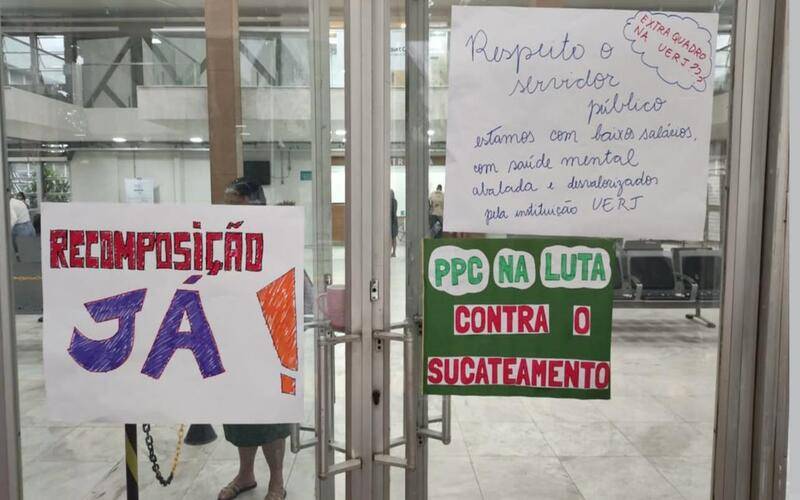 RECOMPOSIÇÃO
JÁ!
Respeito o
servidor
público
estamos com baixos salários,
com saúde mental
abalada e desvalorizados
pela instituição UERJ
EXTRA QUADRO
NA UERJ???
PPC NA LUTA
CONTRA O
SUCATEAMENTO